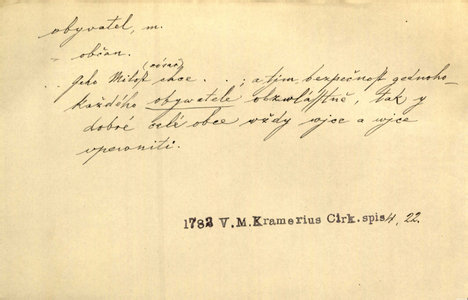 obywatel, m.
- občan.
(císař)
Geho Milost chce . . ; a tim bezpečnost gednoho-
každého obywatele obzwlásstně, tak y
dobré celé obce wždy wjce a wjce
upewniti.
1782 V.M.Kramerius Cirk.spis 4, 22.